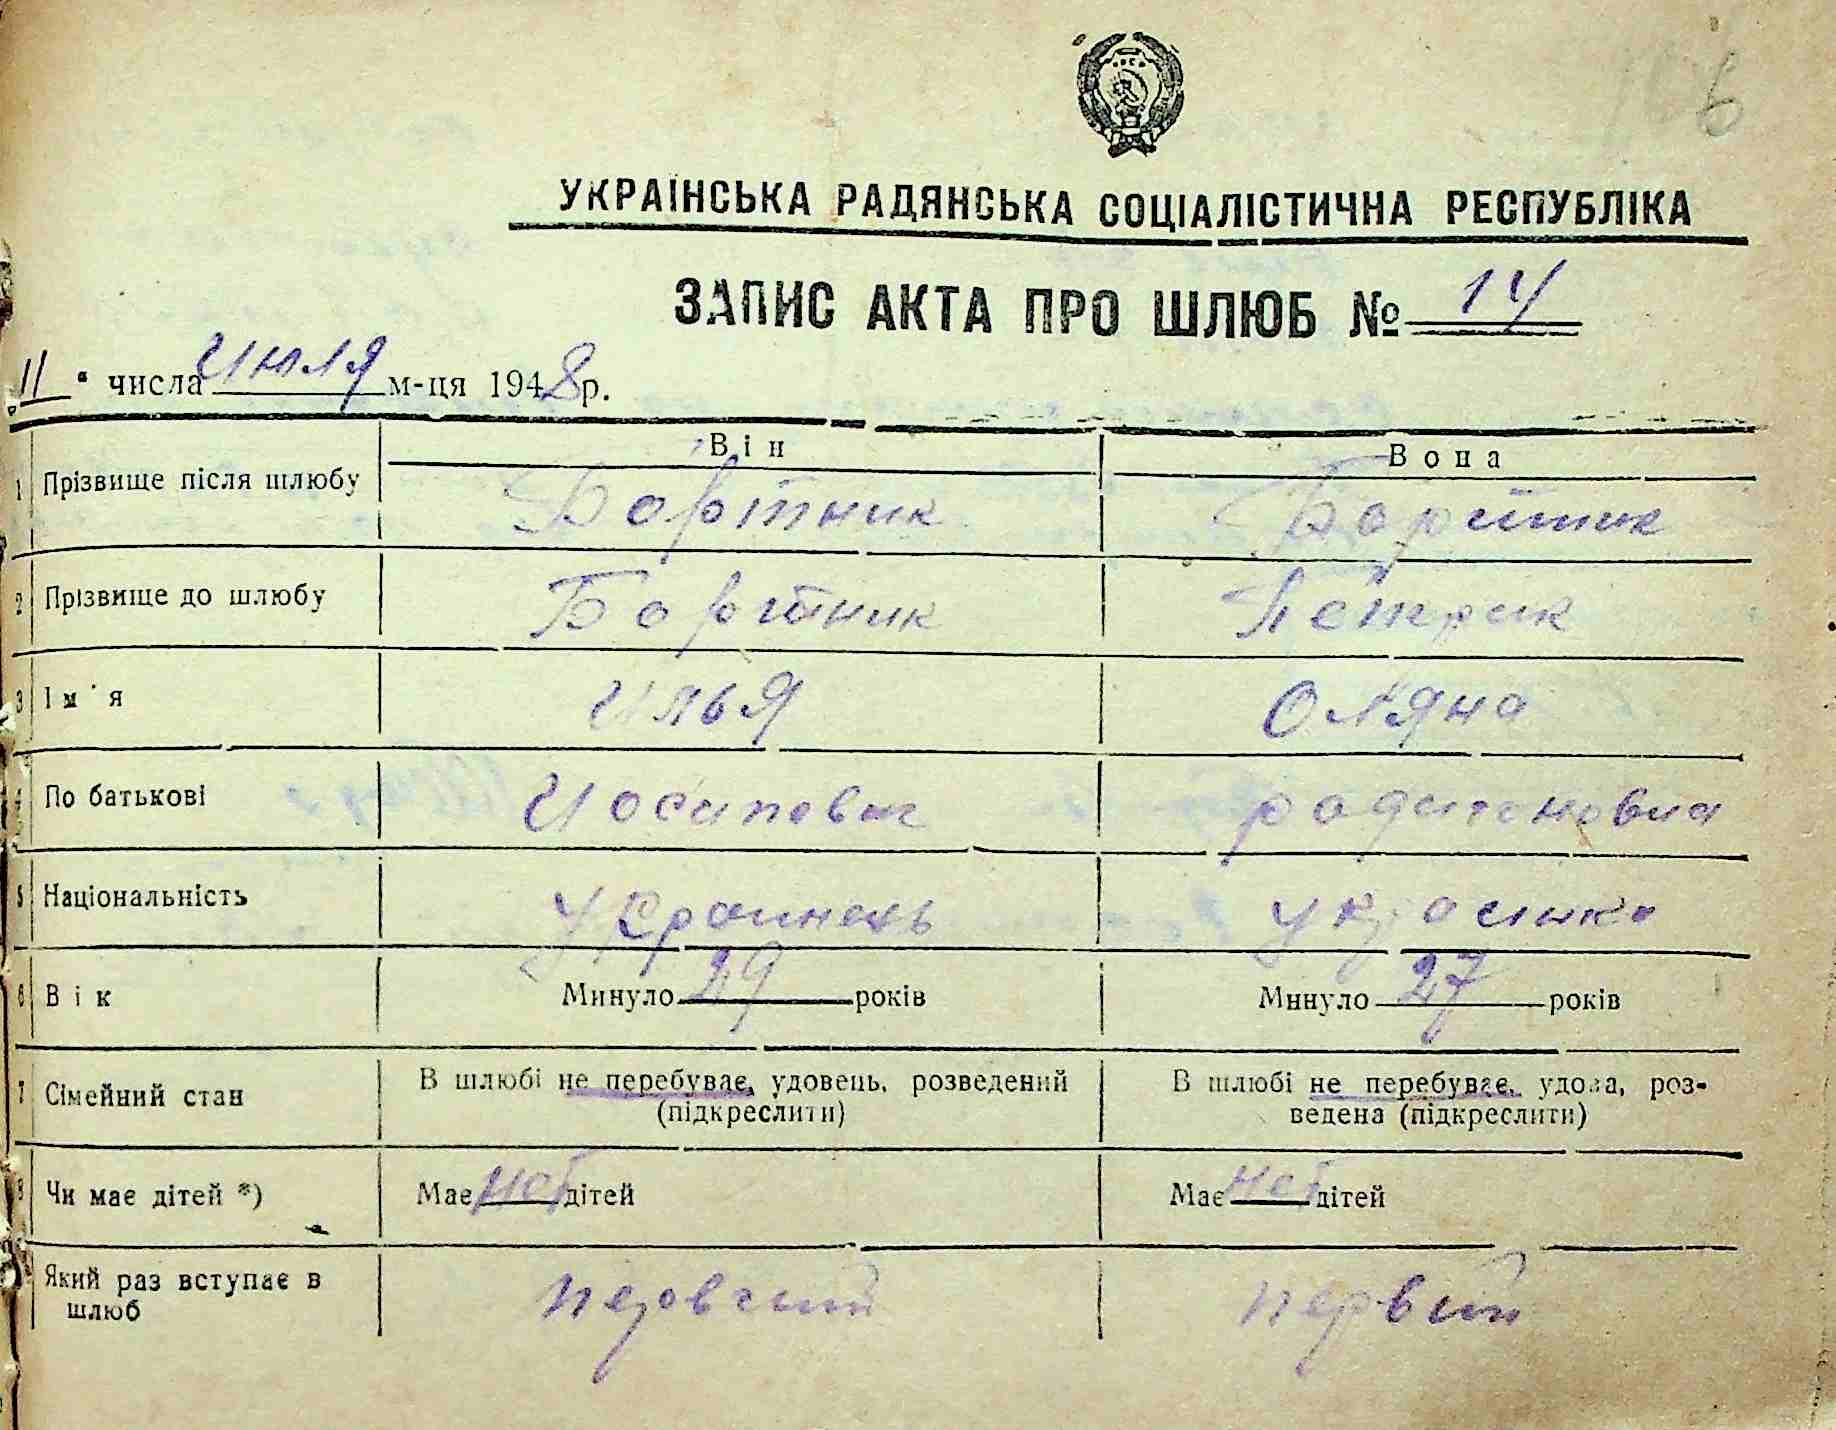 УКРАЇНСЬКА РАДЯНСЬКА СОЦІАЛІСТИЧНА РЕСПУБЛІКА
ЗАПИС АКТА ПРО ШЛЮБ № 14
11 " числа июля м-ця 1948 р.
Він Вона
1 Прізвище після шлюбу Бортник Бортник
2 Прізвище до шлюбу Бортник Петрик
3 Ім'я Илья Оляна
4 По батькові Иосипович
5 Національність Украинець украинка
6 Вік Минуло 29 років Минуло 27 років
7 Сімейний стан В шлюбі не перебуває, удовець, розведений (підкреслити) В шлюбі не перебуває, удова, роз-
ведена (підкреслити)
8 Чи має дітей *) Має нет дітей Має нет дітей
Який раз вступає в
шлюб первий первий